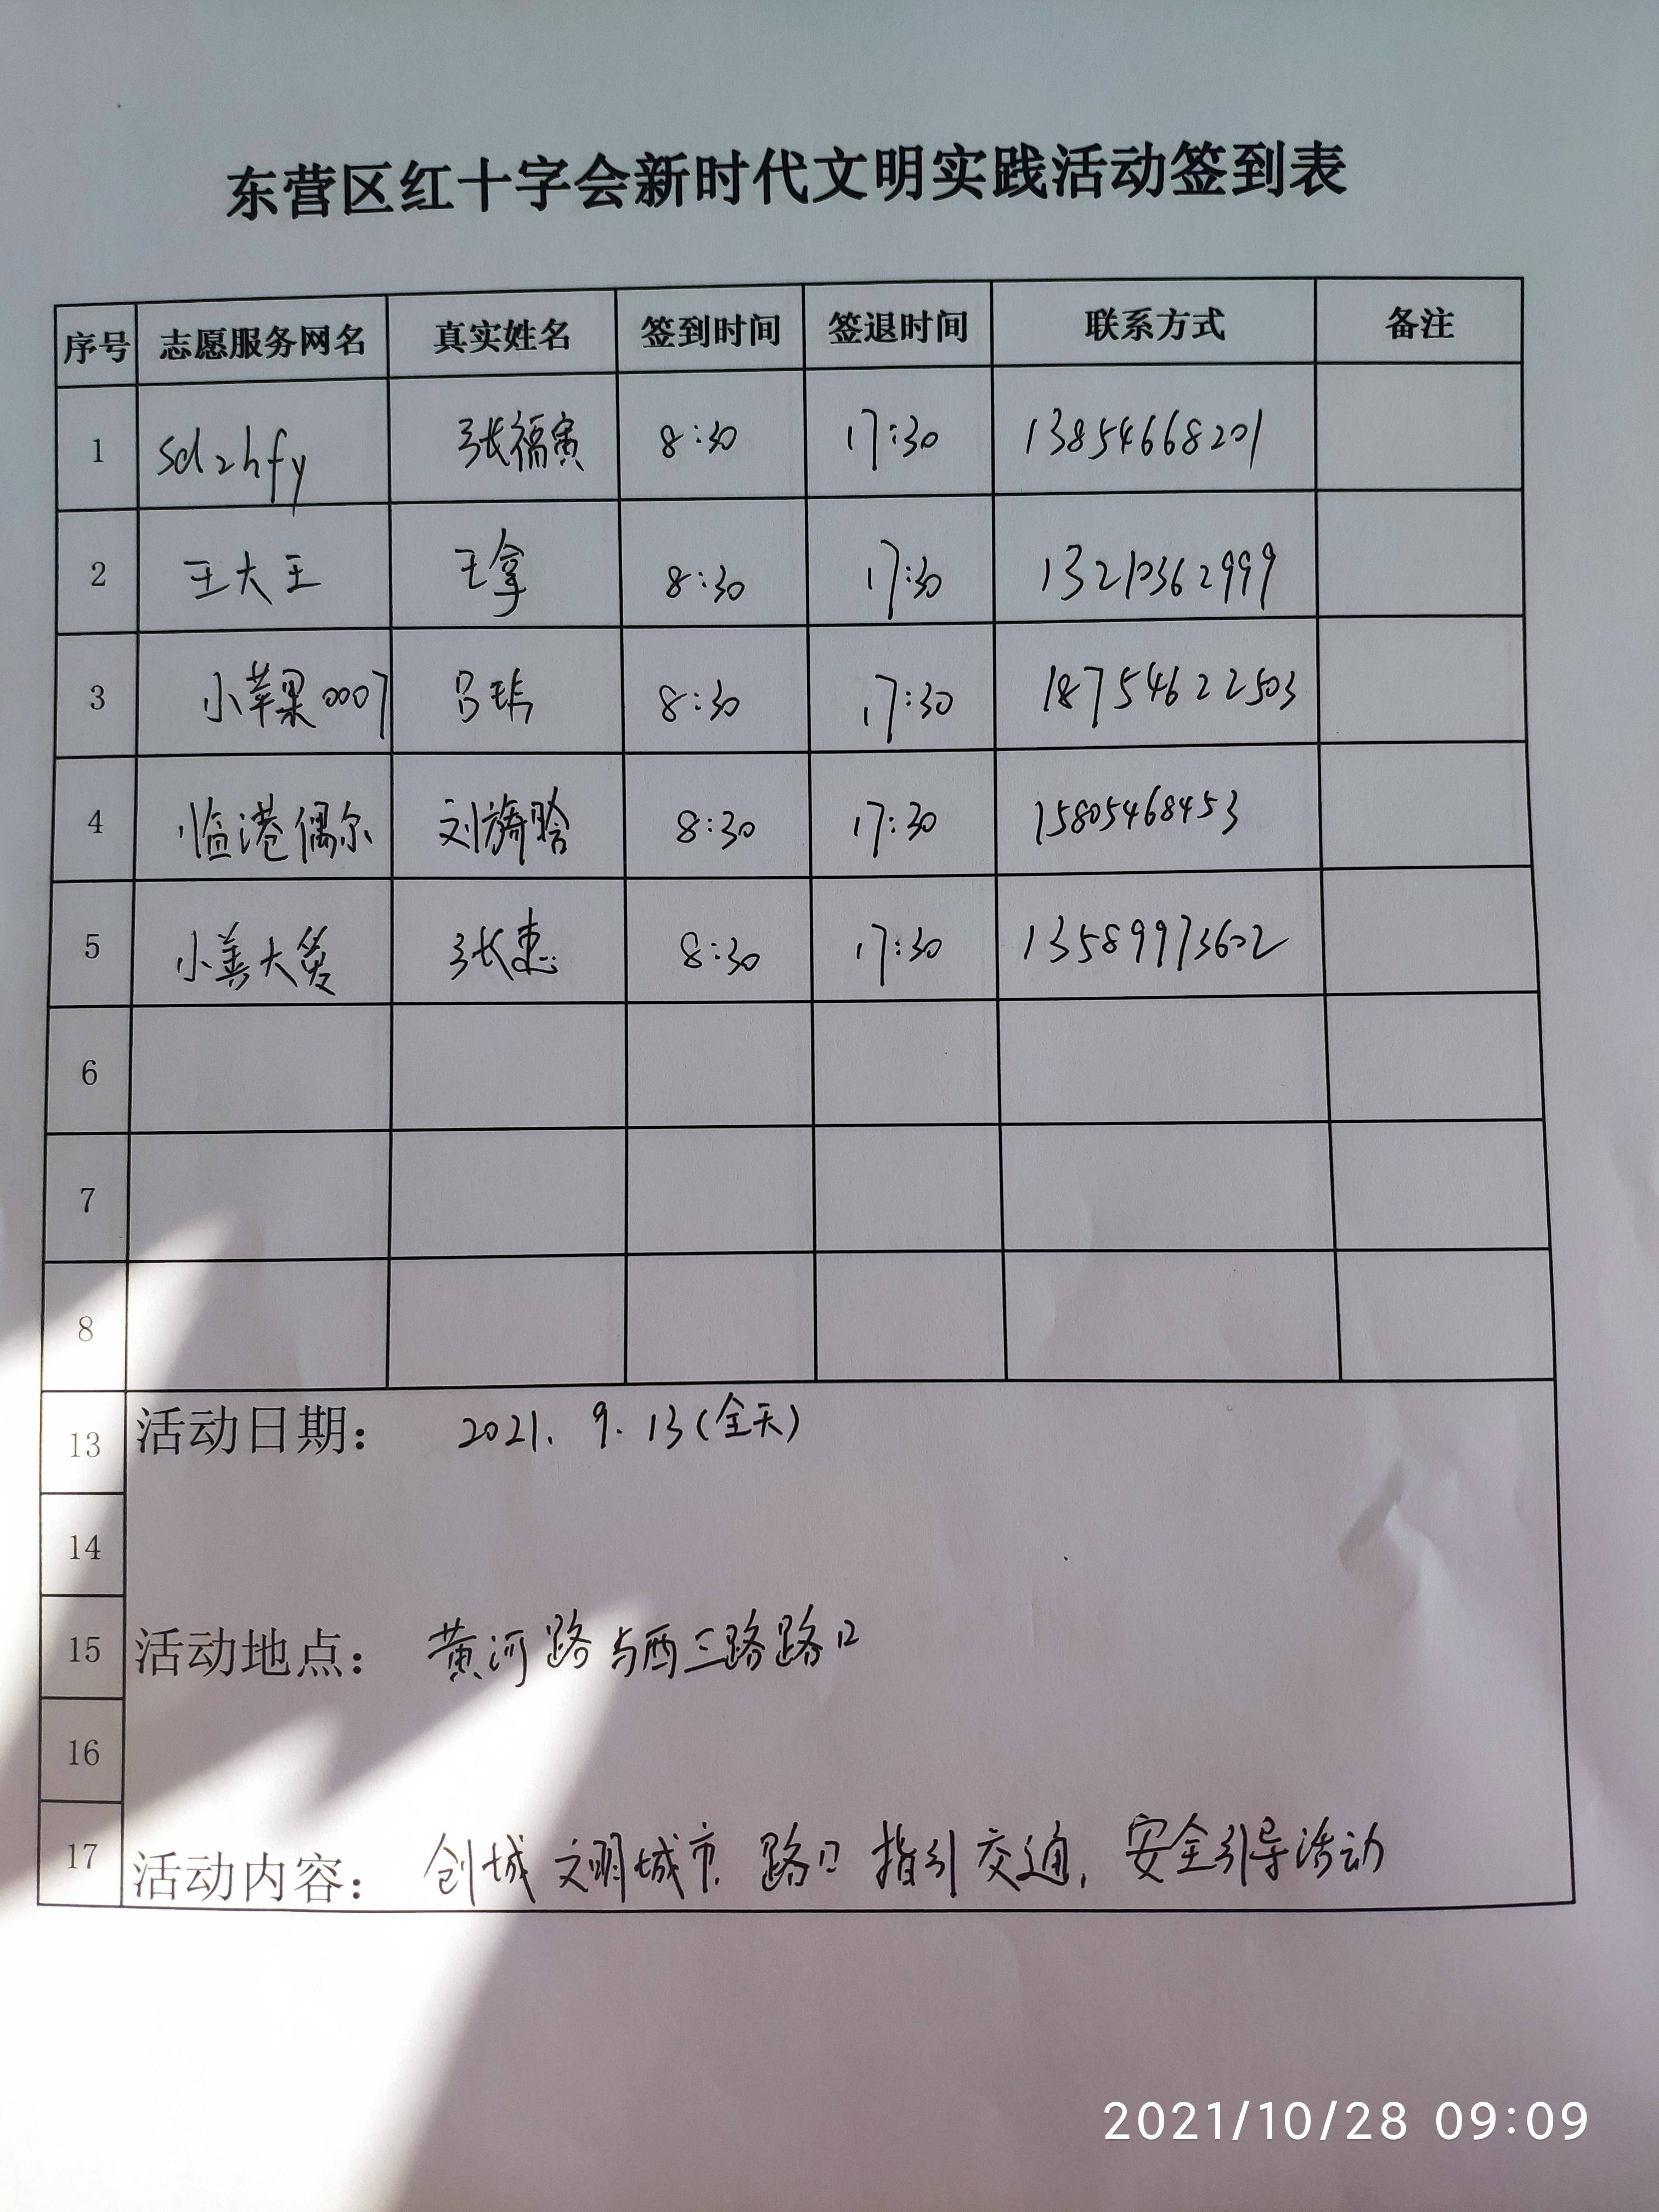 东营区红十字会新时代文明实践活动签到表
序号 志愿服务网名 真实姓名 签到时间 签退时间 联系方式 备注
1 sdzhfy 张福寅 8:30 17:30 13854668201
2 王大王 王拿 8:30 17:30 13210362999
3 小苹果0007 8:30 17:30 18754622503
4 临港偶尔 刘旖晗 8:30 17:30 15805468453
5 小善大爱 张惠 8:30 17:30 13589973602
6
7
8
13 活动日期： 2021. 9. 13(全天)
14
15 活动地点： 黄河路与西三路路口
16
17 活动内容： 创城文明城市. 路口指引交通, 安全引导活动
2021/10/28 09:09